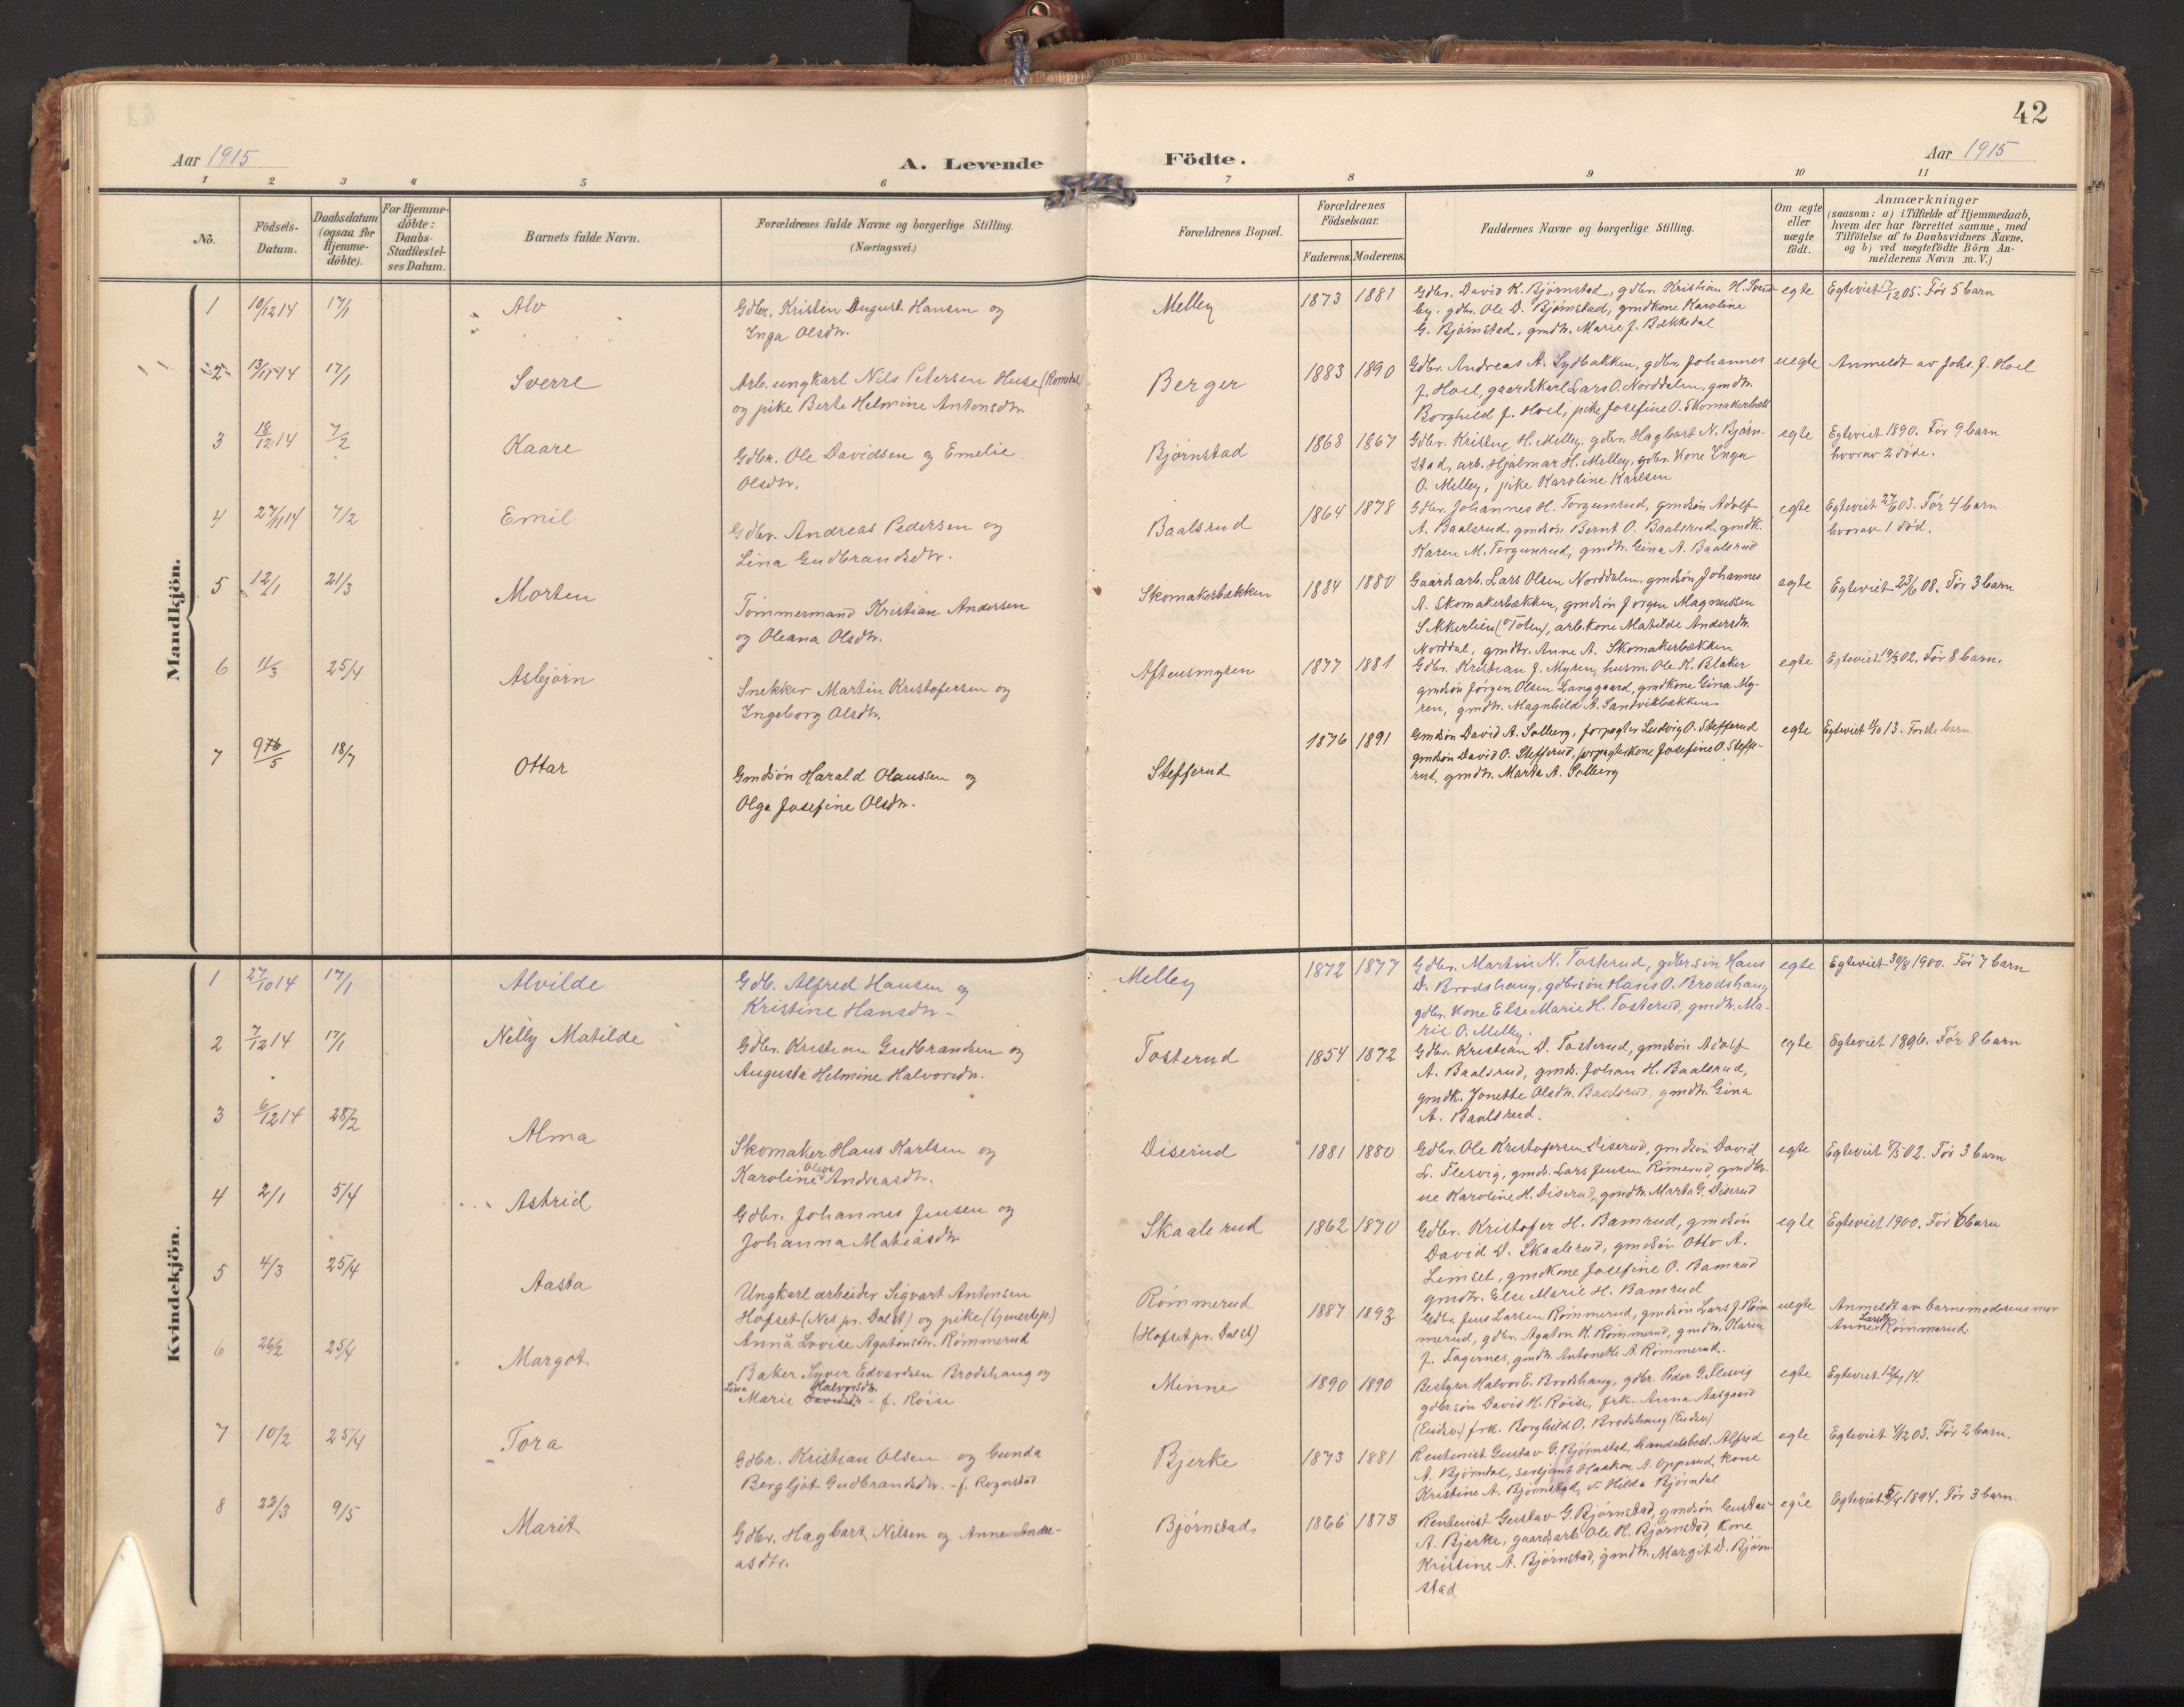 42
Aar 1915
A. Levende Födte.
Aar 1915
1 2 3 4 5 6 7 8 9 10 11
No.
Födsels-Datum.
Daabsdatum (ogsaa for Hjemme-döbte).
For Hjemme-döbte: Daabs-Stadfæstel-ses Datum.
Barnets fulde Navn.
Forældrenes fulde Navne og borgerlige Stilling. (Næringsvei.)
Forældrenes Bopæl.
Forældrenes Födselsaar.
Faderens. Moderens.
Faddernes Navne og borgerlige Stilling.
Om ægte eller uægte födt.
Anmærkninger (saasom: a) i Tilfælde af Hjemmedaab, hvem der har forrettet samme, med Tilföielse af to Daabsvidners Navne, og b) ved uægtefödte Börn An-melderens Navn m. V.)
Mandkjön.
1 10/12 14 17/1 Alv
Gdbr. Kristian August Hansen og
Inga Olsdtr.
Melley 1873 1881
Gdbr. David K. Bjørnstad, gdbr. Kristian H.
gdbr. Ole D. Bjørnstad, gmdkone Karoline
G. Bjørnstad, gmdtr. Marie J. Bækkedal
egte
Egteviet 05. Før 5 barn
2 13/11 14 17/1 Sverre
Arb. ungkarl Nils Petersen Huse (Romedal)
og pike Berte Helmine Antonsdtr.
Berger 1883 1890
Gdbr. Andreas A. Lydbakken, gdbr. Johannes
J. Hoel, gaardskarl Lars O. Norddalen, gmdtr.
Borghild J. Hoel, pike Josefine O. Skomakerbæk
uegte
Anmeldt av Johs. J. Hoel
3 18/12 14 7/2 Kaare
Gdbr. Ole Davidsen og Emelie
Olsdtr.
Bjørnstad 1868 1867
Gdbr. Kristian H. Melley, gdbr. Hagbart N. Bjørn-
stad, arb. Hjalmar H. Melley, gdbr. kone Inga
O. Melley, pike Karoline Karlsen
egte
Egteviet 1890. Før 9 barn
hvorav 2 døde.
4 27/11 14 7/2 Emil
Gdbr. Andreas Pedersen og
Lina Gudbrandsdtr.
Baalsrud 1864 1878
Gdbr. Johannes H. Torgunrud, gmdsøn Adolf
A. Baalsrud, gmdsøn Bernt O. Baalsrud, gmdk.
Karen M. Torgunrud, gmdtr. Gina A. Baalsrud
egte
Egteviet 27/6 03. Før 4 barn
hvorav 1 død.
5 12/1 21/3 Morten
Tømmermand Kristian Andersen
og Oleana Olsdtr.
Skomakerbækken 1884 1880
Gaardsarb. Lars Olsen Norddalen, gmdsøn Johannes
A. Skomakerbækken, gmdsøn Jørgen Magnussen
Sikkerlien (Ø Toten), arb.kone Matilde Andersdtr.
Norddal, gmdtr. Anne A. Skomakerbækken
egte
Egteviet 23/6 08. Før 3 barn
6 11/3 25/4 Asbjørn
Snekker Martin Kristofersen og
Ingeborg Olsdtr.
Aftensmyren 1877 1881
Gdbr. Kristian J. Myren, husm. Ole K. Blaker
gmdsøn Jørgen Olsen Langgaard, gmdkone Gina My-
ren, gmdtr. Magnhild A. Sandvikbækken
egte
Egteviet 02. Før 8 barn.
7 18/7 Ottar
Gmdsøn Harald Olaussen og
Olga Josefine Olsdtr.
Stefferud 1876 1891
Gmdsøn David A. Solberg, forpagter Ludvig O. Stefferud
gmdsøn David O. Stefferud, forpagterkone Josefine O. Steffe-
rud, gmdtr. Marta A. Solberg
egte
Egteviet 13. Første barn.
Kvindekjön.
1 27/10 14 17/1 Alvilde
Gdb. Alfred Hansen og
Kristine Hansdtr.
Melley 1872 1877
Gdbr. Martin N. Tosterud, gdbr.søn Hans
D. Brodshaug, gdbr.søn Hans O. Brodshaug
gdbr. kone Else Marie H. Tosterud, gmdtr. Ma-
rie O. Melley.
egte
Egteviet 30/8 1900. Før 7 barn
2 7/12 14 17/1 Nelly Matilde
Gdbr. Kristian Gudbrandsen og
Augusta Helmine Halvorsdtr.
Tosterud 1854 1872
Gdbr. Kristian D. Tosterud, gmdsøn Adolf
A. Baalsrud, gmds. Johan H. Baalsrud,
gmdk. Jonette Olsdtr. Baalsrud, gmdtr. Gina
A. Baalsrud.
egte
Egteviet 1896. Før 8 barn
3 6/12 14 28/2 Alma
Skomaker Hans Karlsen og
Karoline Olava Andreasdtr.
Diserud 1881 1880
Gdbr. Ole Kristofersen Diserud, gmdsøn David
L. Flesvig, gmds. Lars Jensen Rømerud, gmdko-
ne Karoline H. Diserud, gmdtr. Marta G. Diserud
egte
Egteviet 02. Før 3 barn
4 2/1 5/4 Astrid
Gdbr. Johannes Jensen og
Johanna Matiasdtr
Skaalerud 1862 1870
Gdbr. Kristofer H. Bamrud, gmdsøn
David D. Skaalerud, gmdsøn Otto A.
Limset, gmdkone Josefine O. Bamrud
gmdtr. Else Marie H. Bamrud
egte
Egteviet 1900. Før 6 barn
5 4/3 25/4 Aasta
Ungkarl arbeider Sigvart Antonsen
Hofset (Nes pr. Dalst) og pike (tjenestep.)
Anna Lovise Agatonsdtr. Rømmerud
Rømmerud
(Hofset pr. Dalst)
1887 1893
Gdbr. Jens Larsen Rømmerud, gmdsøn Lars J. Røm
merud, gdbr. Agaton K. Rømmerud, gmdtr. Karen
J. Fagernes, gmdtr. Antonette A. Rømmerud.
uegte
Anmeldt av barnemoderens mor
Anne Larsdtr Rømmerud
6 26/2 25/4 Margot
Baker Syver Edvardsen Brodshaug og
Lina Marie Davidsdtr Halvorsdtr. - f. Røise
Minne 1890 1890
Bestyrer Halvor E. Brodshaug, gdbr. Peder G. Flesvig
gdbr.søn David H. Røise, frk. Anna Aasgaard
(Eidsv.) frk. Borghild O. Brodshaug (Eidsv.)
egte
Egteviet 14.
7 10/2 25/4 Tora
Gdbr. Kristian Olsen og Gunda
Bergljot Gudbrandsdtr. - f. Rognstad
Bjerke 1873 1881
Rentenist Gustav G. Bjørnstad, handelsbest. Alfred
A. Bjørndal, serjant Haakon A. Opperud, kone
Kristine A. Bjørnstad, Hilda Bjørndal
egte
Egteviet 03. Før 2 barn.
8 22/3 9/5 Marit
Gdbr. Hagbart Nilsen og Anne Andre-
asdtr.
Bjørnstad 1866 1873
Rentenist Gustav G. Bjørnstad, gmdsøn Gustav
A. Bjerke, gaardsarb. Ole K. Bjørnstad, kone
Kristine A. Bjørnstad, gmdtr. Margit D. Bjørn-
stad
egte
Egteviet 1894. Før 3 barn.